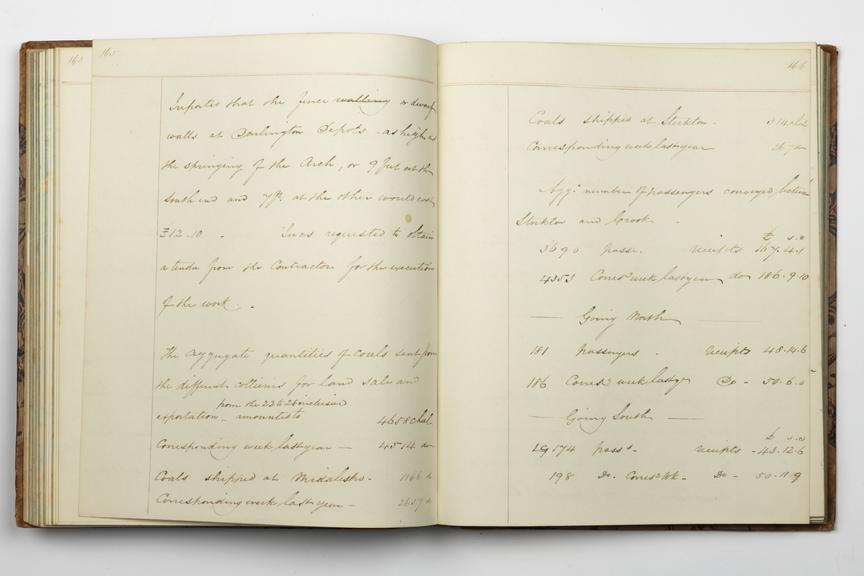 163
165
that the fence walling or dwarf
walls at Darlington Depots - as high as
the springing of the Arch, or 9 feet at the
south end and 7 ft. at the other would cost
£12.10 - was requested to obtain
a tender from the Contractor for the execution
of the work. -
The aggregate quantities of coals sent from
the different collieries for land sale and
from the 22 to 28 inclusive
exportation - amounted to 4658 chal
Corresponding week last year - 4514 do
Coals shipped at Middlesbro - 1866 d
Corresponding week last year - 2657 d
166
Coals shipped at Stockton - 314 chal
Corresponding week last year 267 do
Agg. number of passengers conveyed betwn
Stockton and Crook -
£ s. d
3690 passrs. receipts 167.4.1
4353 Corresg week last year do 186.9.10
Going North
181 passengers - receipts 48.14.6
186 Corresg week last yr Do - 50.6.0
Going South
£ s. d
174 passrs. receipts - 43.12.6
198 Do. Corresg Wk. - Do - 50.11.9